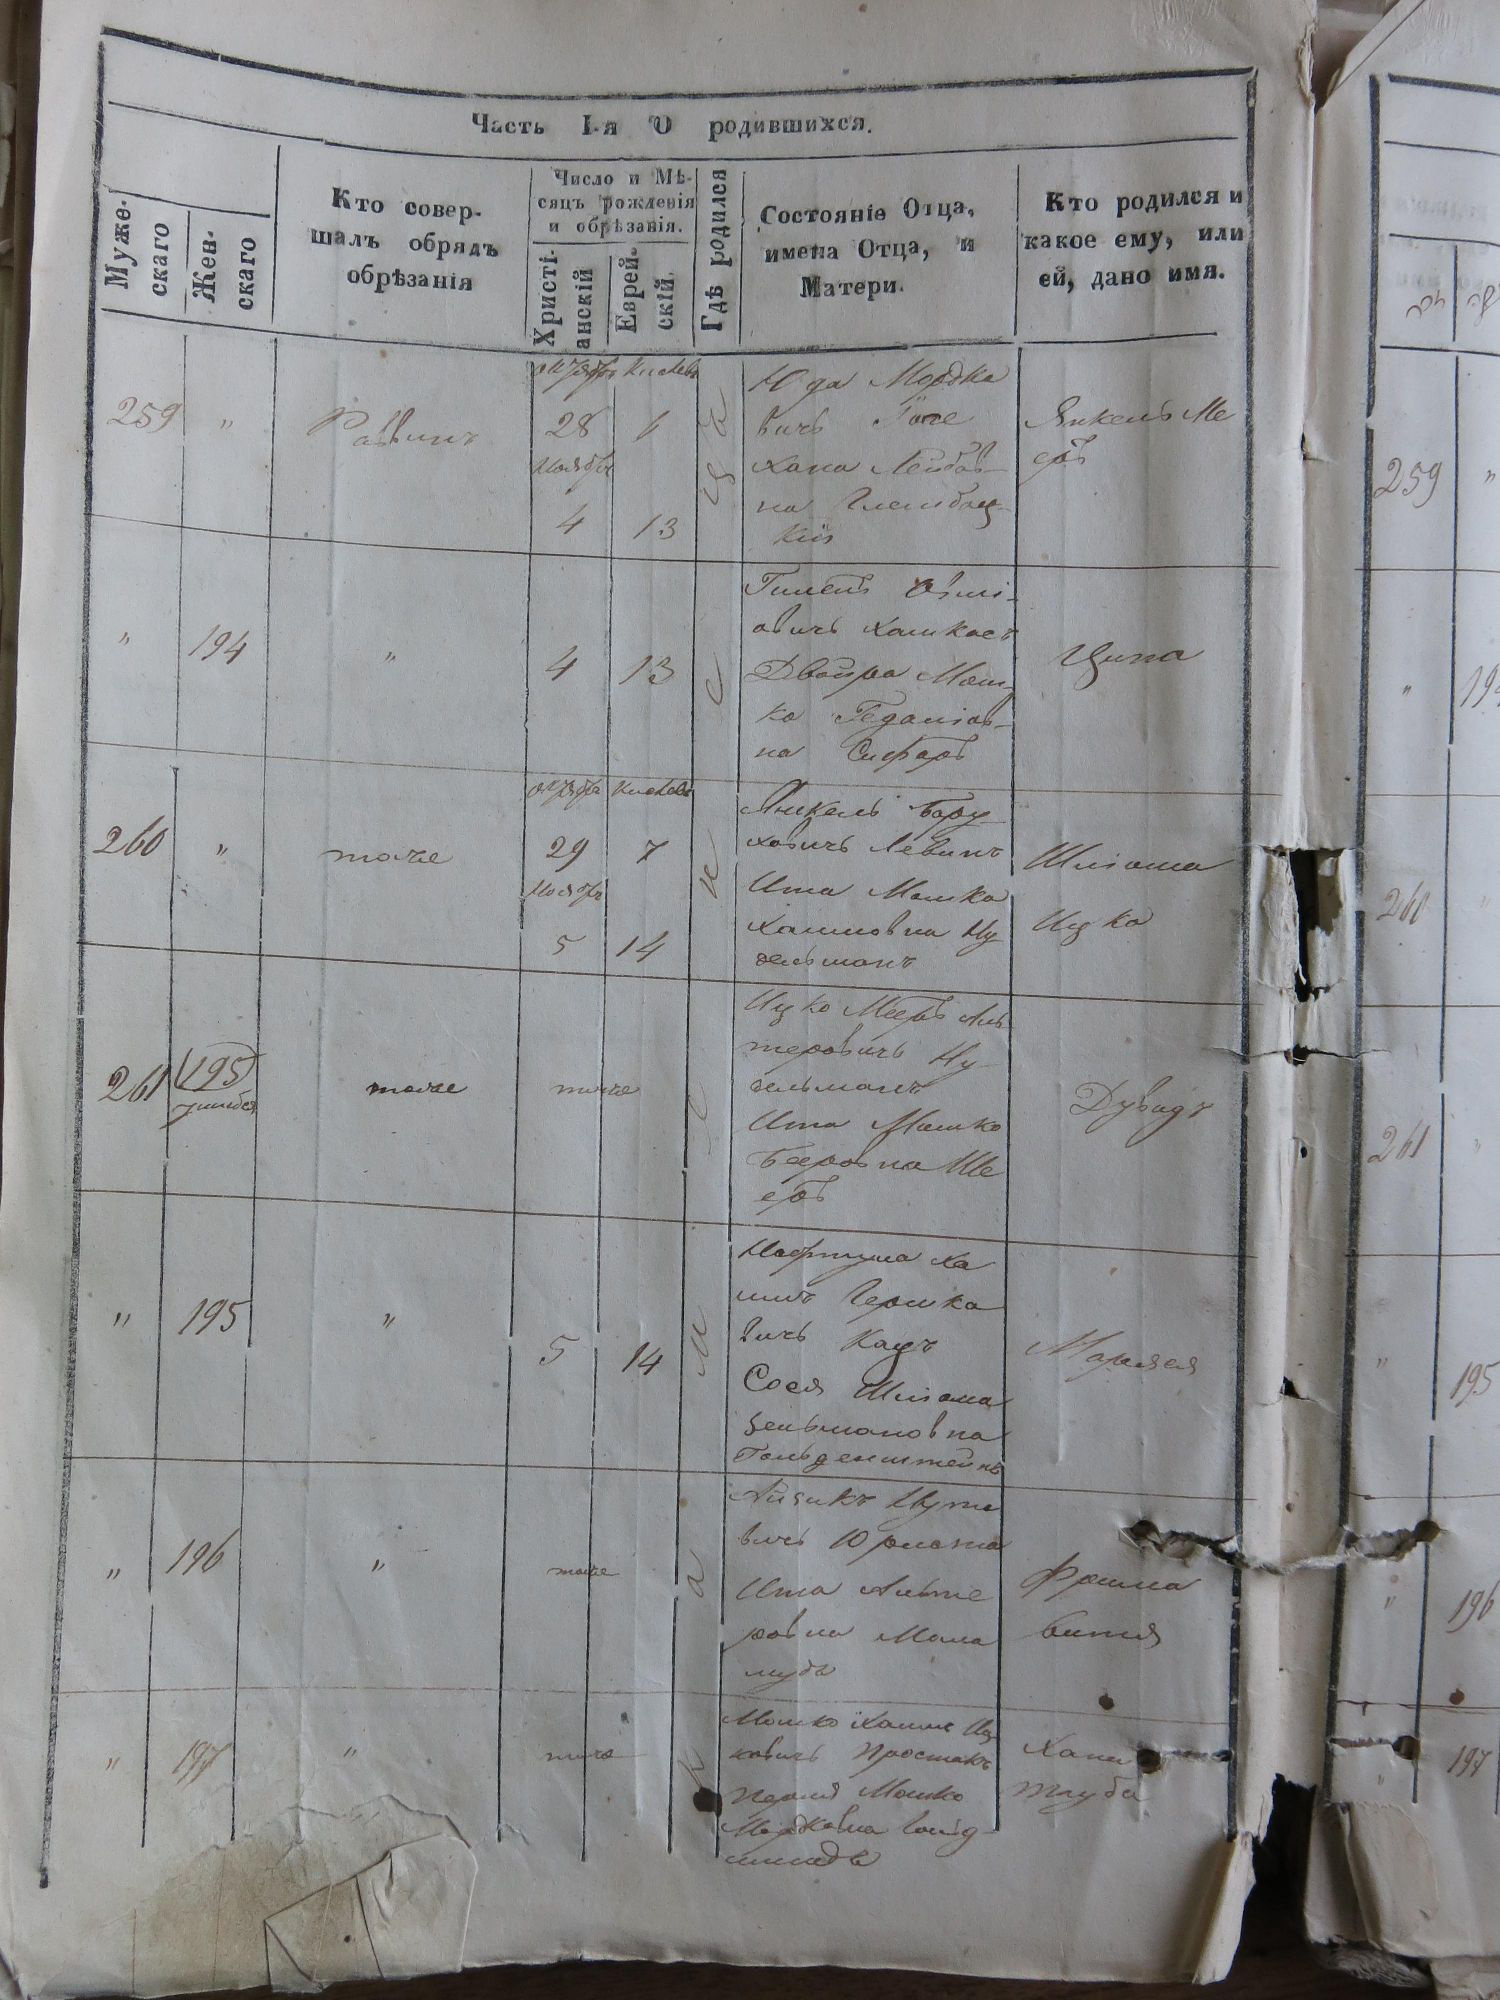 Часть I-я О родившихся.
Муже-
скаго
Жен-
скаго
Кто совер-
шалъ обрядъ
обрѣзанія
Число и Мѣ-
сяцъ рожденія
и обрѣзанія.
Христі-
анскій
Еврей-
скій.
Гдѣ родился
Состояніе Отца,
имена Отца, и
Матери.
Кто родился и
какое ему, или
ей, дано имя.
259 "
Раввинъ
28
Ноябрь
4 13
Юда Мордко
вичъ
Хана Лейбов-
на
Янкель Ме
еръ
" 194 " 4 13
Двойра Мош-
ко Гедаліов-
на
Ципа
260 " тоже
29 7
Ноябрь
5 14
Янкель Бору
ховичъ Левинъ
Ита Мошко
Хаимовна Ну
дельманъ
Шліома
Ицко
261 (195) тоже тоже
Ицко Мееръ Аль
теровичъ Ну
дельманъ
Ита Мошко
Беровна Ме
еръ
Дувидъ
" 195 " 5 14
Нафтула Ха
имъ Гершко
вичъ Кацъ
Сося Шліома
Зельмановна
Гольденштейнъ
" 196 " тоже
Айзикъ Нуто
вичъ
Ита Альте
ровна Мала
мудъ
Фрима
Битя
" 197 " тоже
Мошко Хаимъ Иц
ковичъ Простакъ
Перля Мошко
Мордковна
Хана
Тауба
259 "
" 194
260
261
" 195
" 196
" 197